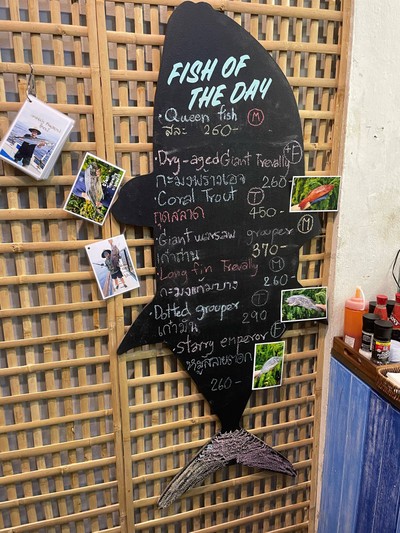 FISH OF
THE DAY
• Queen fish (M)
สีละ 260-
• Dry-aged Giant Trevally (F)
กะมงพร้าว 260-
• Coral Trout (T)
กุดสลาด 450-
• Giant warsaw grouper (M)
เก๋าถ่าน 370-
• Long fin Trevally (M)
กะมงแก้มบาง 260-
• Dotted grouper (T)
290
• Starry emperor (F)
หมูสี
260-